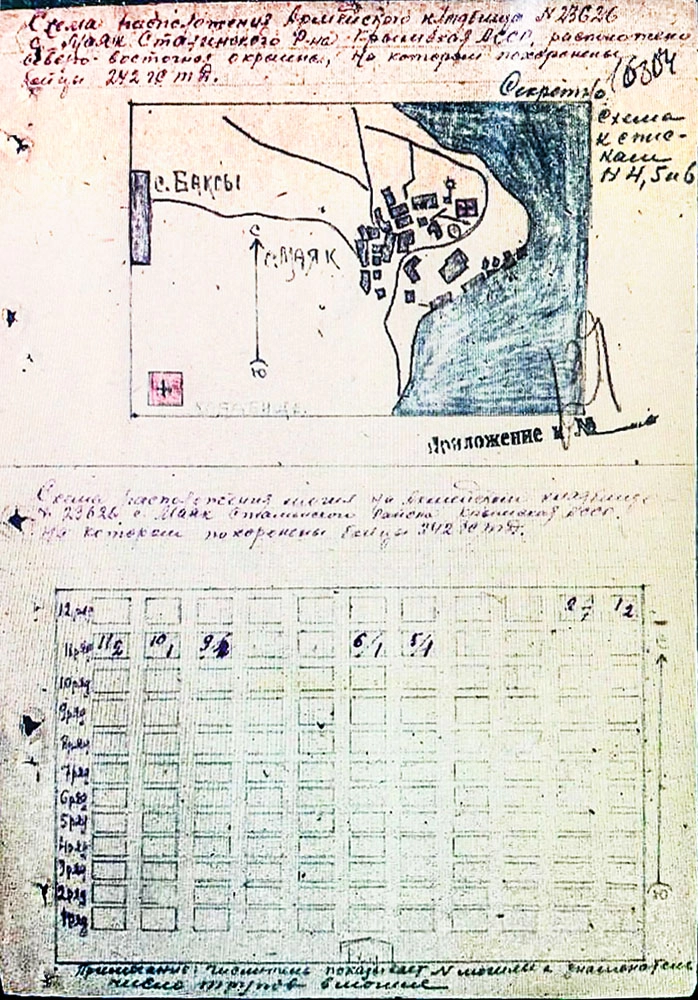 Схема расположения Армейского кладбища N 23626
с. Маяк Сталинского р-на Крымская АССР, расположено
северо-восточная окраина, на котором похоронены
бойцы 242 гс т д.
Секретно
16304
Схема
к спис-
кам
N 4, 5 и 6
с. Баксы
С
с. Маяк
Ю
Приложение к №
Схема расположения могил на Армейском кладбище
N 23626 с. Маяк Сталинского района Крымская АССР.
на котором похоронены бойцы 242 гс т д.
12 ряд 2/1 1/2
11 ряд 11/2 10/1 9/6 6/1 5/4
10 ряд
9 ряд
8 ряд
7 ряд
6 ряд
5 ряд
4 ряд
3 ряд
2 ряд
1 ряд
Ю
Примечание: числитель показывает N могилы а знаменатель
число трупов в могиле